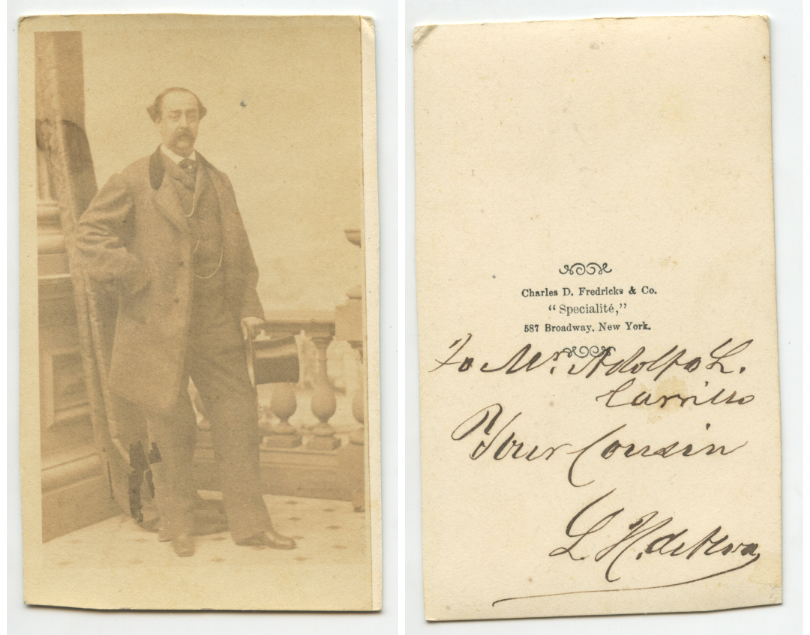 Charles D. Fredricks & Co.
"Specialité,"
587 Broadway, New York.
To Mr. Adolfo L.
Carrillo
Your Cousin
L. H. de